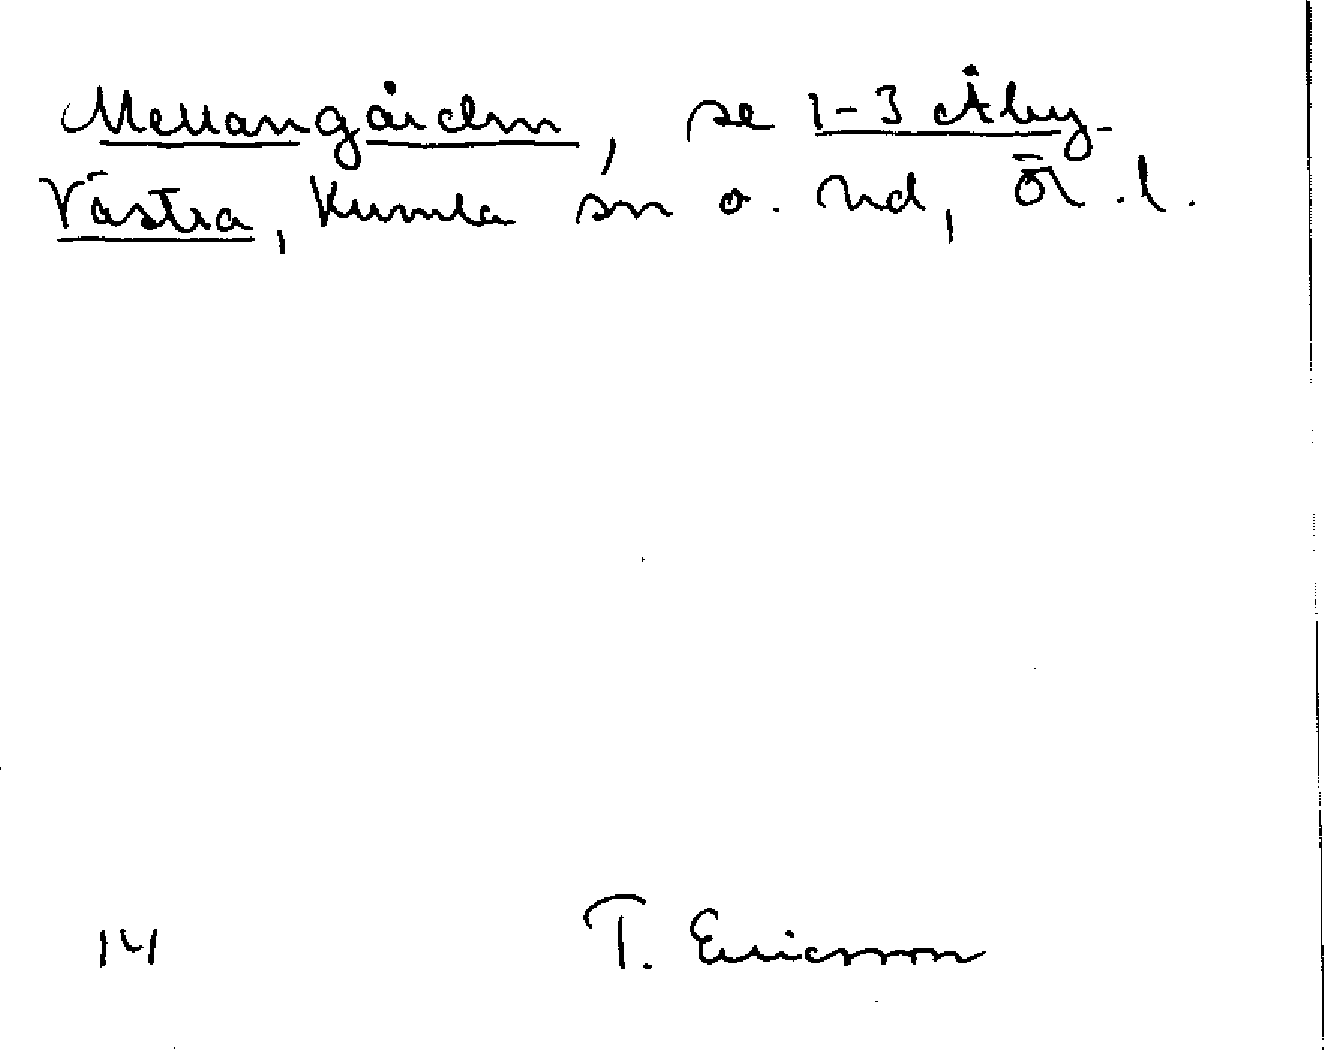 Mellangården, se 1-3 Åby-
Västra, Kumla sn o. hd, Ör. l.
14 T. Ericsson